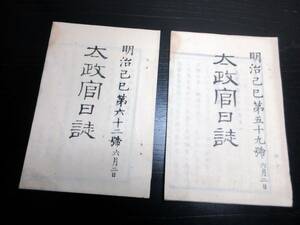 明治己巳第五十九號 六月二日
太政官日誌
明治己巳第六十二號 六月二日
太政官日誌